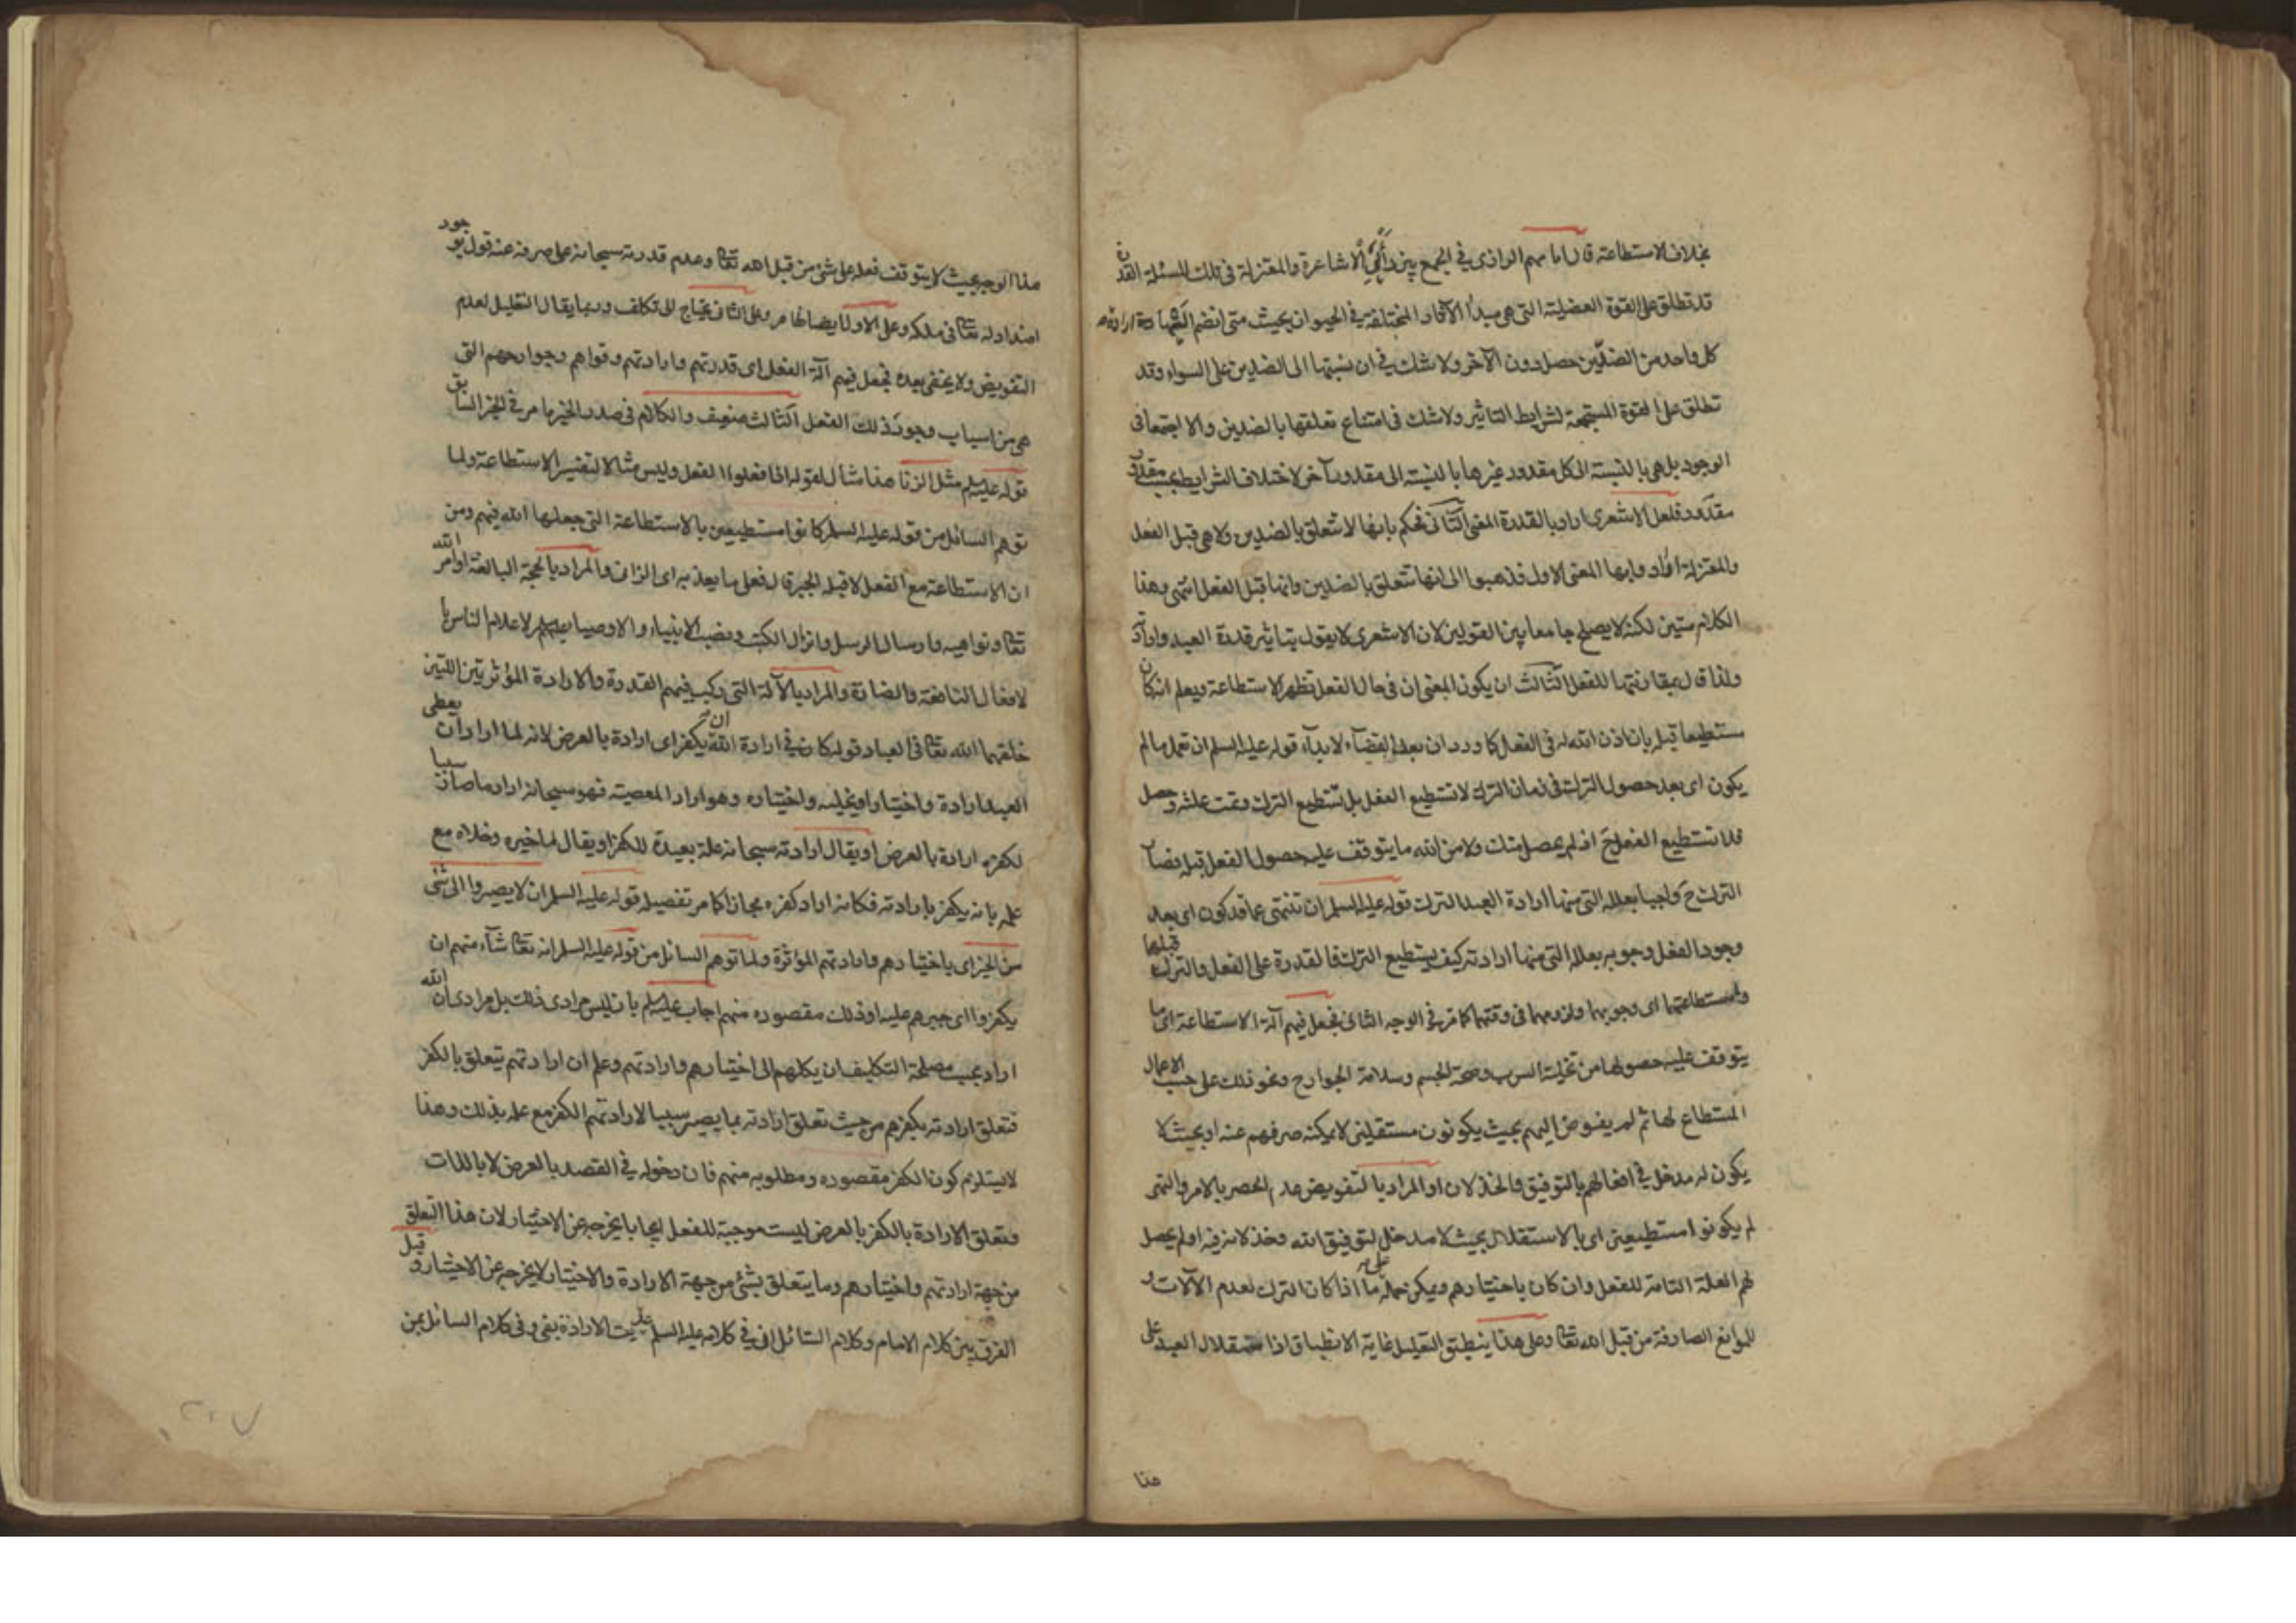 بخلاف الاستطاعة قال امامهم الرازى في الجمع بين رأيي الاشاعرة والمعتزلة في تلك المسئلة القدرة
قد تطلق على القوة العضلية التى هى مبدأ الآثار المختلفة في الحيوان بحيث متى انضم اليها ارادة
كل واحد من الضدّين حصل دون الآخر ولا شك في ان نسبتها الى الضدين على السواء وقد
تطلق على القوة المستجمعة لشرايط التاثير ولا شك في امتناع تعلقها بالضدين والا اجتمعا في
الوجود بل هى بالنسبة الى كل مقدور غيرها بالنسبة الى مقدور آخر لاختلاف الشرايط بحسب مقدور
مقدور فلعل الاشعرى اراد بالقدرة المعنى الثانى فحكم بانها لا تتعلق بالضدين ولا هى قبل الفعل
والمعتزلة ارادوا بها المعنى الاول فذهبوا الى انها تتعلق بالضدين وانها قبل الفعل انتهى وهذا
الكلام متين لكنه لا يصلح جامعا بين القولين لان الاشعرى لا يقول بتاثير قدرة العبد وارادته
ولذا قال بمقارنتها للفعل الثالث ان يكون المعنى ان في حال الفعل تظهر الاستطاعة ويعلم انه كان
مستطيعا قبله بان اذن الله له في الفعل كما ورد ان بعد القضآء لا بدآء قوله عليه السلم ان تعمل ما لم
يكون اى بعد حصول الترك في زمان الترك لا تستطيع الفعل بل تستطيع الترك وتمت علته وحصل
فلا تستطيع الفعل ح اذ لم يحصل منك ولا من الله ما يتوقف عليه حصول الفعل قبله فصار
الترك ح واجبا بعلله التى منها ارادة العبد الترك قوله عليه السلم ان تنتهى عما قد كون اى بعد
وجود الفعل وجوبه بعلله التى منها ارادته كيف يستطيع الترك فالقدرة على الفعل والترك قبلها
واستطاعتها اى وجوبها ولزومها في وقتها كما مر في الوجه الثانى فجعل فيهم آلة الاستطاعة اى ما
يتوقف عليه حصولها من تخلية السرب وصحة الجسم وسلامة الجوارح ونحو ذلك على حسب الاعمال
المستطاع لها ثم لم يفوض اليهم بحيث يكونون مستقلين لا يمكنه صرفهم عنه او بحيث لا
يكون له مدخل في افعالهم بالتوفيق والخذلان او المراد بالتفويض عدم الحصر بالامر والنهى
لم يكونوا مستطيعين اى بالاستقلال بحيث لا مدخل لتوفيق الله وخذلانه فيه او لم يحصل
لهم العلة التامة للفعل وان كان باختيارهم ويمكن حمله على ما اذا كان الترك لعدم الآلات و
الموانع الصارفة من قبل الله تعالى وعلى هذا ينطبق التعليل غاية الانطباق اذا ستقلال العبد على
هذا
هذا الوجه بحيث لا يتوقف فعله على شئ من قبل الله تعالى وعدم قدرته سبحانه على صرفه عنه قول بوجود
اضداد له تعالى في ملكه وعلى الاول ايضا لما مر وعلى الثانى يحتاج الى تكلف وربما يقال التعليل لعدم
التفويض ولا يخفى بعده فجعل فيهم آلة الفعل اى قدرتهم وارادتهم وقواهم وجوارحهم التى
هى من اسباب وجود ذلك الفعل الثالث ضعيف والكلام في صدر الخبر ما مر في الخبر السابق
قوله عليه السلم مثل الزنا هذا مثال لقوله اذا فعلوا الفعل وليس مثالا لتفسير الاستطاعة ولما
توهم السائل من قوله عليه السلم كانوا مستطيعين بالاستطاعة التى جعلها الله فيهم ومن
ان الاستطاعة مع الفعل لا قبله الجبر قال فعلى ما يعذبه اى الزانى والمراد بالحجة البالغة اوامر الله
تعالى ونواهيه وارسال الرسل وانزال الكتب ونصب الانبياء والاوصياء عليهم السلم لاعلام الناس با
لافعال النافعة والضارة والمراد بالآلة التى ركب فيهم القدرة والارادة المؤثرتين اللتين
خلقهما الله تعالى في العباد قوله كان في ارادة الله ان يكفر اى ارادة بالعرض لانه لما اراد ان يعطى
العبد ارادة واختيارا ويخليه واختياره وهو اراد المعصية فهو سبحانه اراد ما صار سببا
لكفره ارادة بالعرض او يقال ارادته سبحانه علة بعيدة للكفر او يقال لما خيره وخلاه مع
علمه بانه يكفر بارادته فكانه اراد كفره مجازا كما مر تفصيله قوله عليه السلم ان لا يصيروا الى شئ
من الخير اى باختيارهم وارادتهم المؤثرة ولما توهم السائل من قوله عليه السلم انه تعالى شآء منهم ان
يكفروا اى جبرهم عليه او ذلك مقصوده منهم اجاب عليه السلم بان ليس مرادى ذلك بل مرادى ان الله
اراد بحسب مصلحة التكليف ان يكلهم الى اختيارهم وارادتهم وعلم ان ارادتهم يتعلق بالكفر
فتعلق ارادته بكفرهم من حيث تعلق ارادته بما يصير سببا لارادتهم الكفر مع علمه بذلك وهذا
لا يستلزم كون الكفر مقصوده ومطلوبه منهم فان دخوله في القصد بالعرض لا بالذات
وتعلق الارادة بالكفر بالعرض ليست موجبة للفعل ايجابا يخرجه عن الاختيار لان هذا التعلق
من جهة ارادتهم واختيارهم وما يتعلق بشئ من جهة الارادة والاختيار لا يخرجه عن الاختيار وقيل
الفرق بين كلام الامام وكلام السائل ان في كلامه عليه السلم الارادة بفى وفى كلام السائل بمن